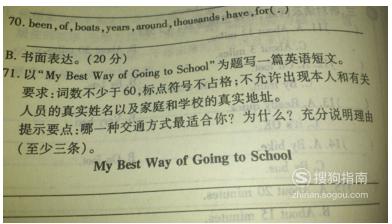 70. been, of, boats, years, around, thousands, have, for(.)
B. 书面表达。(20 分)
71. 以"My Best Way of Going to School"为题写一篇英语短文。
要求:词数不少于 60,标点符号不占格;不允许出现本人和有关
人员的真实姓名以及家庭和学校的真实地址。
提示要点:哪一种交通方式最适合你? 为什么? 充分说明理由
(至少三条)。
My Best Way of Going to School
S 搜狗指南
zhinan.sogou.com